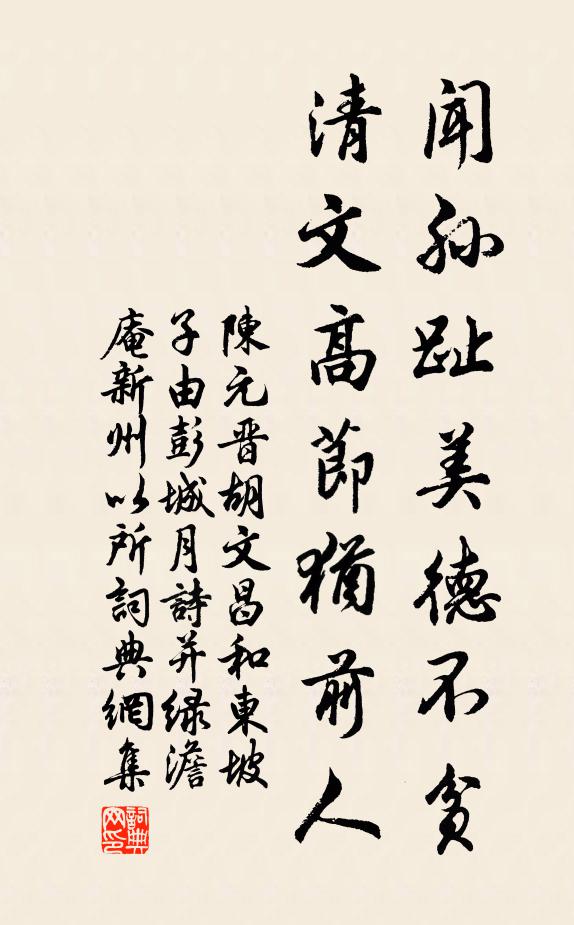 聞孫趾美德不貧
清文高節猶前人
陳元晋胡文昌和東坡
子由彭城月詩并緑澹
庵新州以所詞典網集
詞典网印